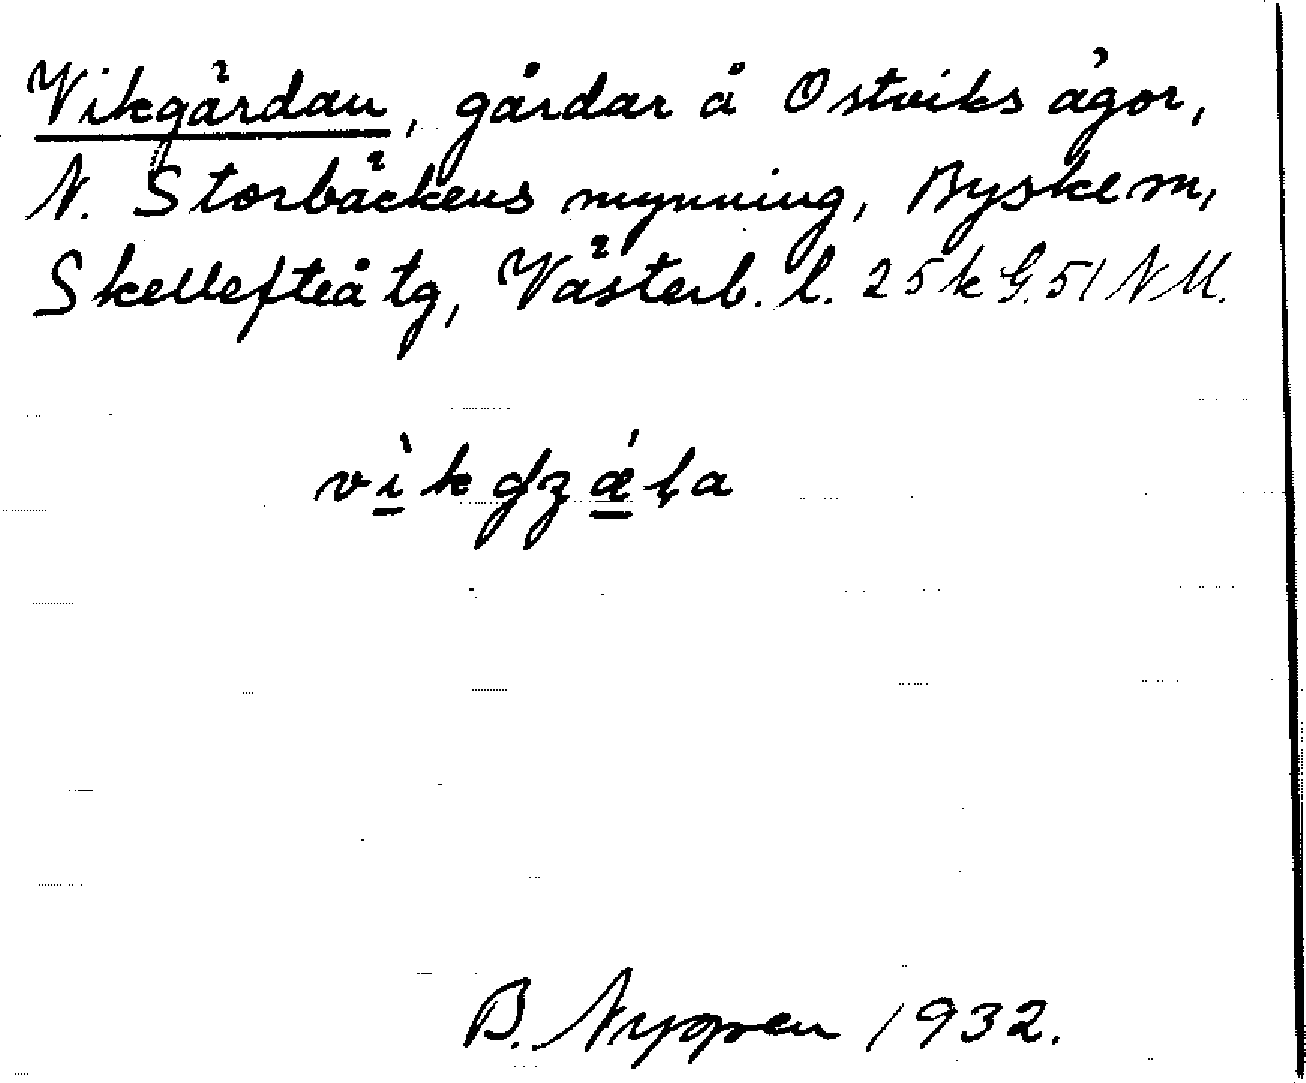 Vikgärdan, gårdar å Ostviks ägor,
N. Storbäckens mynning, Byske sn,
Skellefteå tg, Västerb. l. 25 k G. 51 NM.
B. Nyppen 1932.